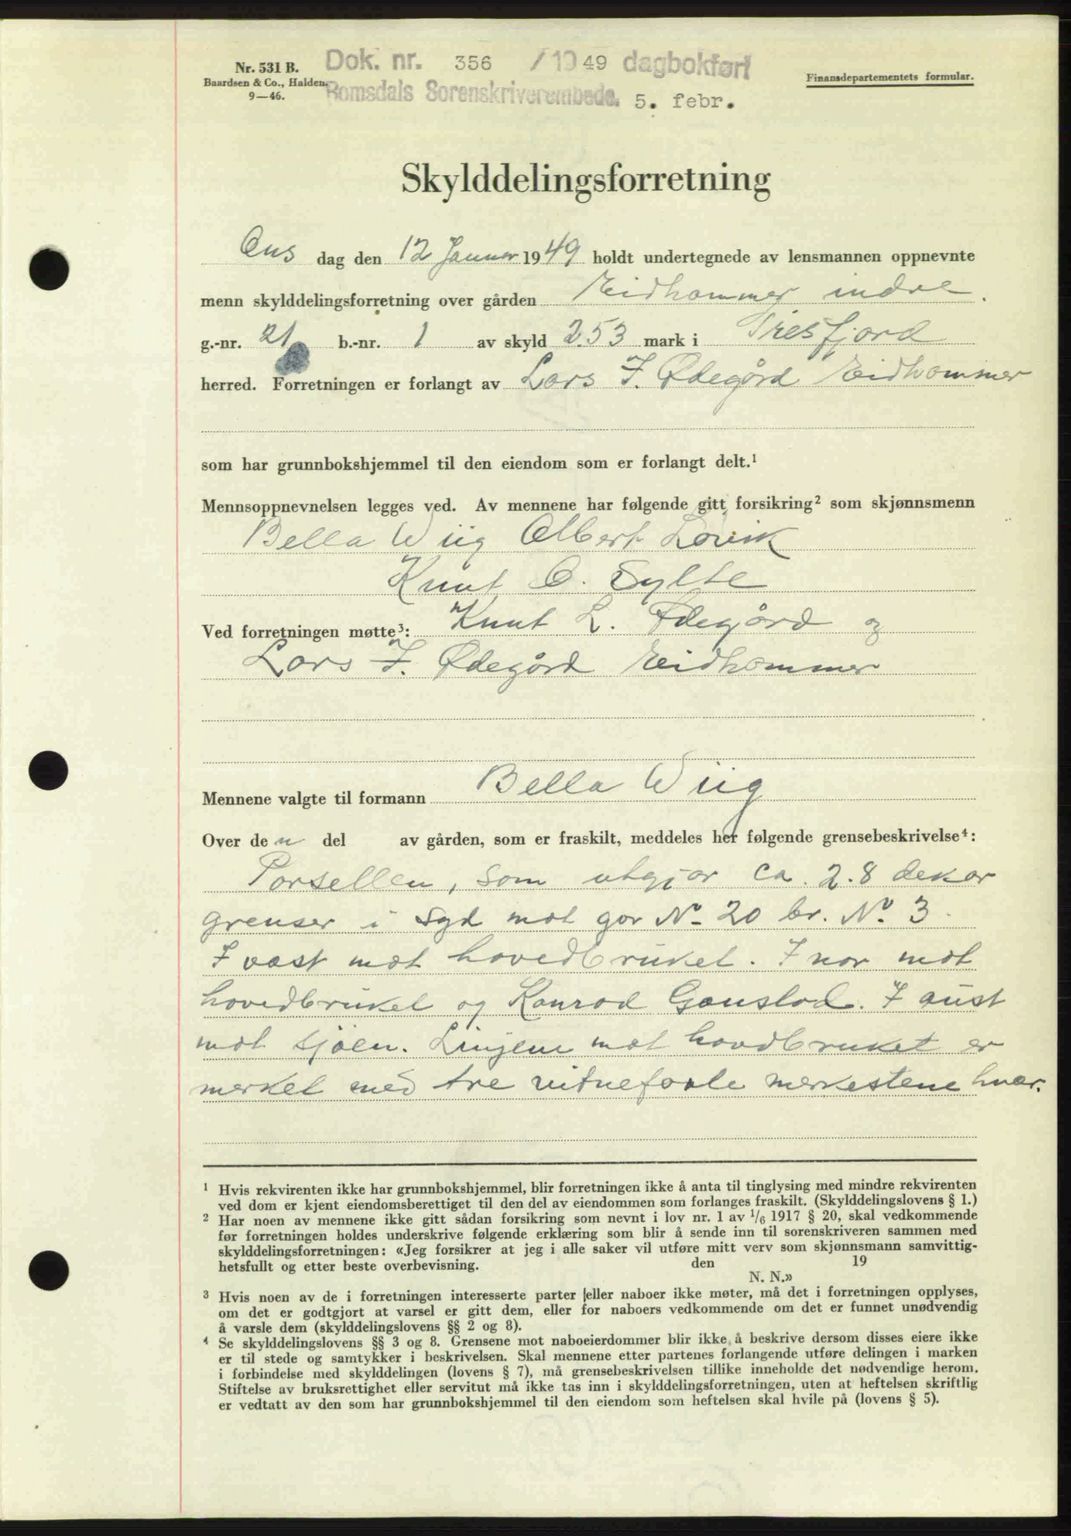 Nr. 531 B.
Baardsen & Co., Halden.
9—46.
Dok. nr. 356 / 1949 dagbokført
Romsdals Sorenskriverembede. 5. febr.
Finansdepartementets formular.
Skylddelingsforretning
Ons dag den 12 Januar 1949 holdt undertegnede av lensmannen oppnevnte
menn skylddelingsforretning over gården Eidhammer indre.
g.-nr. 21 b.-nr. 1 av skyld 2.53 mark i Tresfjord
herred. Forretningen er forlangt av Lars I. Ødegård Eidhammer
som har grunnbokshjemmel til den eiendom som er forlangt delt.¹
Mennsoppnevnelsen legges ved. Av mennene har følgende gitt forsikring² som skjønnsmenn
Bella Wiig Albert Løvik
Knut O. Sylte
Ved forretningen møtte³: Knut L. Ødegård og
Lars I. Ødegård Eidhammer
Mennene valgte til formann Bella Wiig
Over den del av gården, som er fraskilt, meddeles her følgende grensebeskrivelse⁴:
Parsellen, som utgjør ca. 2.8 dekar
grenser i syd mot gar No 20 br. No 3.
I vest mot hovedbruket. I nor mot
hovedbruket og Konrad Gaustad. I aust
mot sjøen. Linjene mot hovdbruket er
merket med tre vitnefaste merkestene hver.
¹ Hvis rekvirenten ikke har grunnbokshjemmel, blir forretningen ikke å anta til tinglysing med mindre rekvirenten
ved dom er kjent eiendomsberettiget til den del av eiendommen som forlanges fraskilt. (Skylddelingslovens § 1.)
² Har noen av mennene ikke gitt sådan forsikring som nevnt i lov nr. 1 av ¹/₆ 1917 § 20, skal vedkommende
før forretningen holdes underskrive følgende erklæring som blir å sende inn til sorenskriveren sammen med
skylddelingsforretningen: «Jeg forsikrer at jeg i alle saker vil utføre mitt verv som skjønnsmann samvittig-
hetsfullt og etter beste overbevisning. den 19
N. N.»
³ Hvis noen av de i forretningen interesserte parter eller naboer ikke møter, må det i forretningen opplyses,
om det er godtgjort at varsel er gitt dem, eller for naboers vedkommende om det er funnet unødvendig
å varsle dem (skylddelingslovens §§ 2 og 8).
⁴ Se skylddelingslovens §§ 3 og 8. Grensene mot naboeierdommer blir ikke å beskrive dersom disses eiere ikke
er til stede og samtykker i beskrivelsen. Skal mennene etter partenes forlangende utføre delingen i marken
i forbindelse med skylddelingen (lovens § 7), må grensebeskrivelsen tillike inneholde det nødvendige herom.
Stiftelse av bruksrettighet eller servitut må ikke tas inn i skylddelingsforretningen, uten at heftelsen skriftlig
er vedtatt av den som har grunnbokshjemmel til den eiendom som heftelsen skal hvile på (lovens § 5).